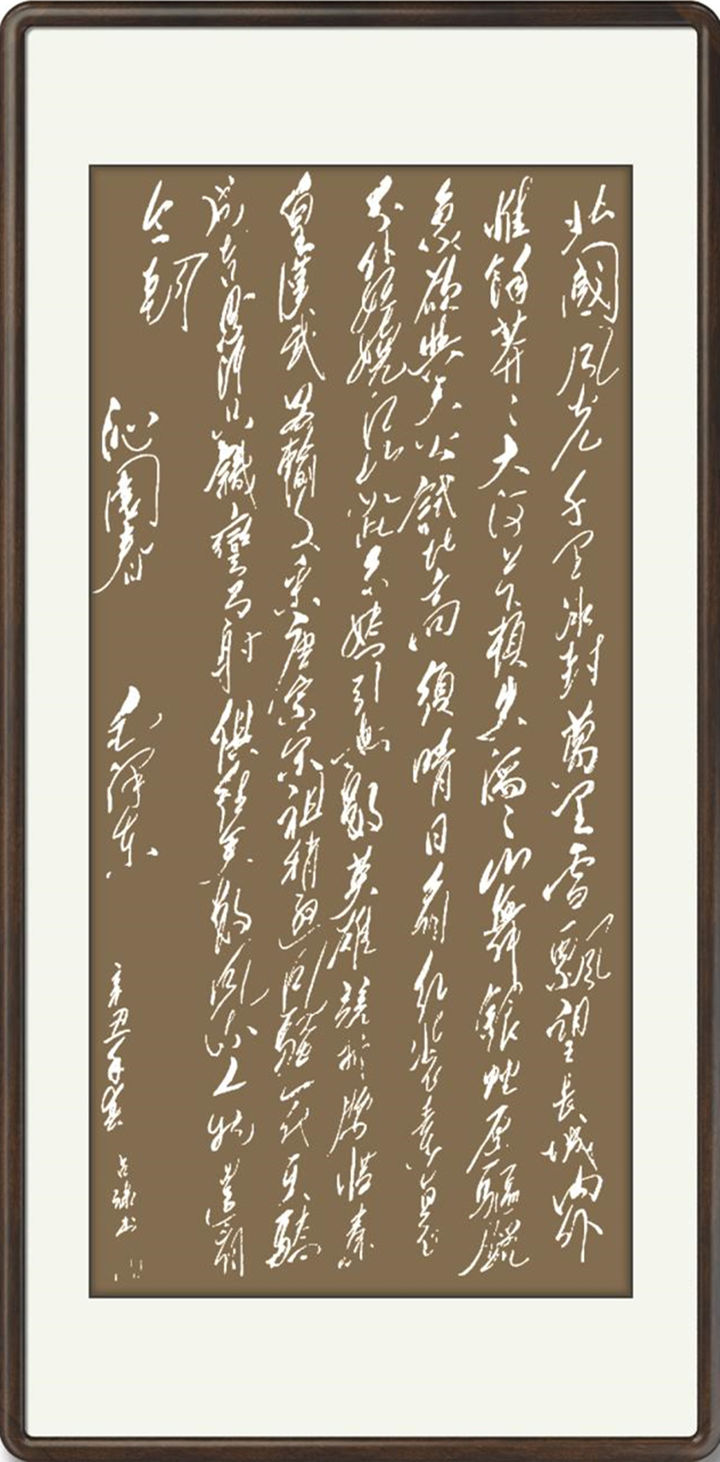 北國風光千里冰封萬里雪飄望長城內外
惟餘莽々大河上下頓失滔々山舞銀蛇原驅蠟
象欲與天公試比高須晴日看紅裝素裹
分外妖嬈江山如此多嬌引無數英雄競折腰惜秦
皇漢武略輸文采唐宗宋祖稍遜風騷一代天驕
成吉思汗只識彎弓射俱往矣數風流人物還看
今朝
沁園春
毛澤東
辛丑年